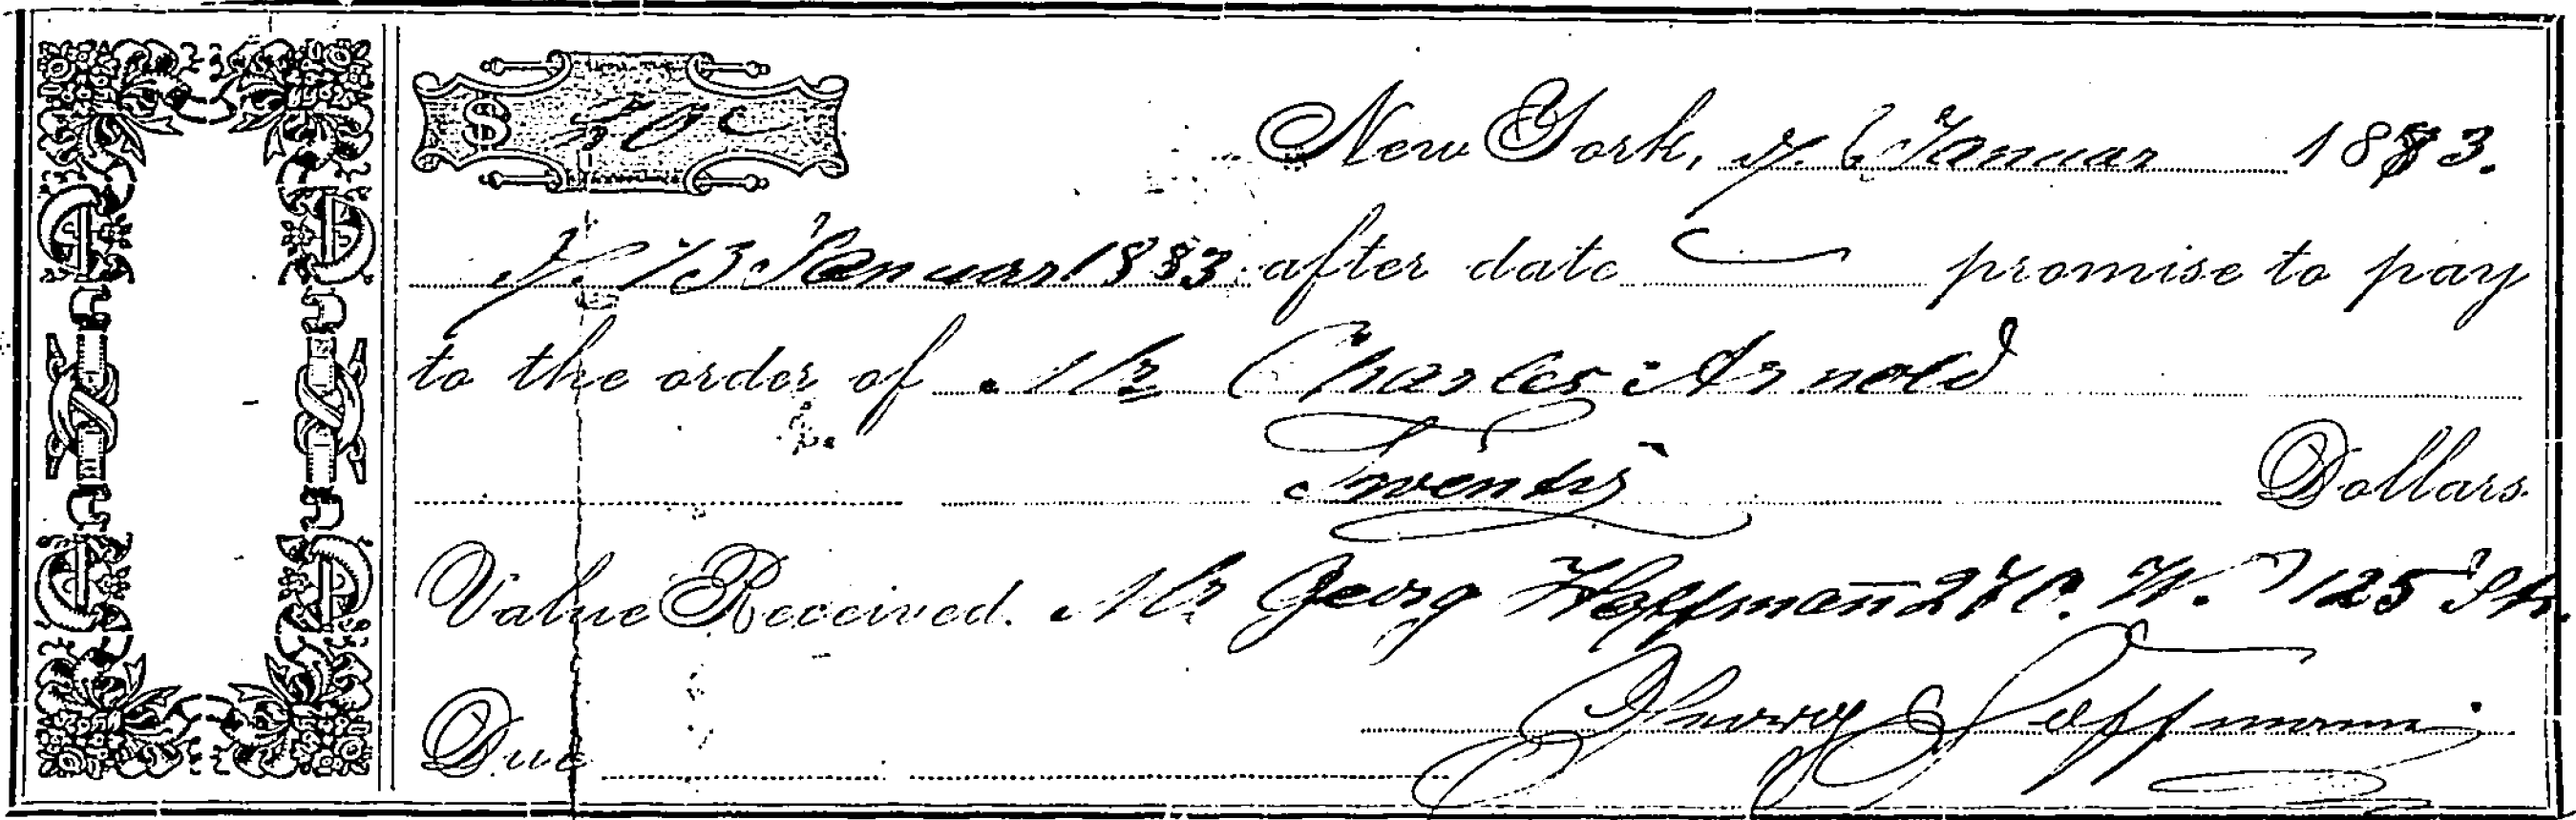 $ 20
New York, d. 6 Januar 1883.
d. 13 Januar 1883 after date promise to pay
to the order of Mr Charles Arnold
Twenty Dollars
Value Received. Mr Georg Hoffmann W. 125 Str.
Georg Hoffmann
Due